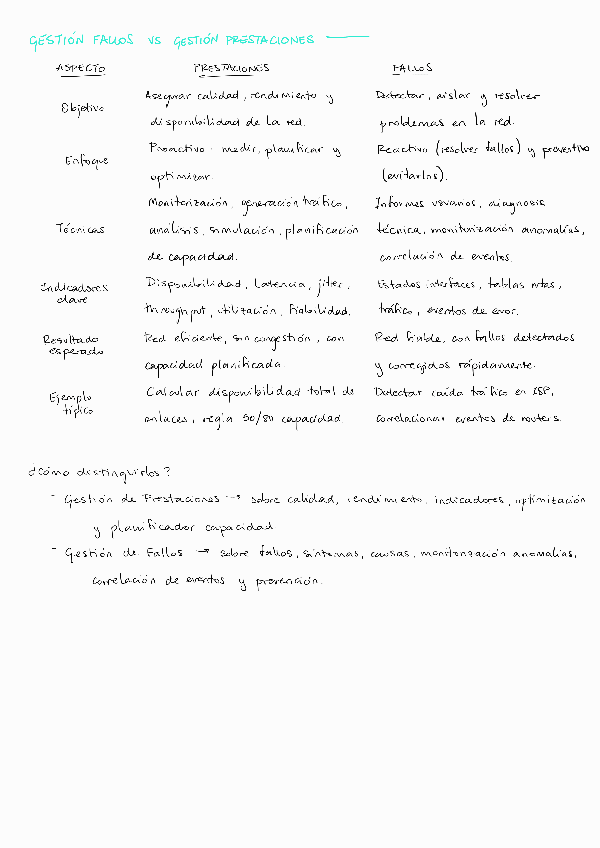 GESTIÓN FALLOS VS GESTIÓN PRESTACIONES
ASPECTO PRESTACIONES FALLOS
Objetivo
Asegurar calidad, rendimiento y
disponibilidad de la red.
Detectar, aislar y resolver
problemas en la red.
Enfoque
Proactivo: medir, planificar y
optimizar.
Reactivo (resolver fallos) y preventivo
(evitarlos).
Técnicas
Monitorización, generación tráfico,
análisis, simulación, planificación
de capacidad.
Informes usuarios, diagnosis
técnica, monitorización anomalías,
correlación de eventos.
Indicadores
clave
Disponibilidad, latencia, jitter,
throughput, utilización, fiabilidad.
Estados interfaces, tablas rutas,
tráfico, eventos de error.
Resultado
esperado
Red eficiente, sin congestión, con
capacidad planificada
Red fiable, con fallos detectados
y corregidos rápidamente.
Ejemplo
típico
Calcular disponibilidad total de
enlaces, regla 50/80 capacidad
Detectar caída tráfico en ISP,
correlacionar eventos de routers.
¿Cómo distinguirlos?
- Gestión de Prestaciones → sobre calidad, rendimiento, indicadores, optimización
y planificador capacidad
- Gestión de Fallos → sobre fallos, síntomas, causas, monitorización anomalías,
correlación de eventos y prevención.